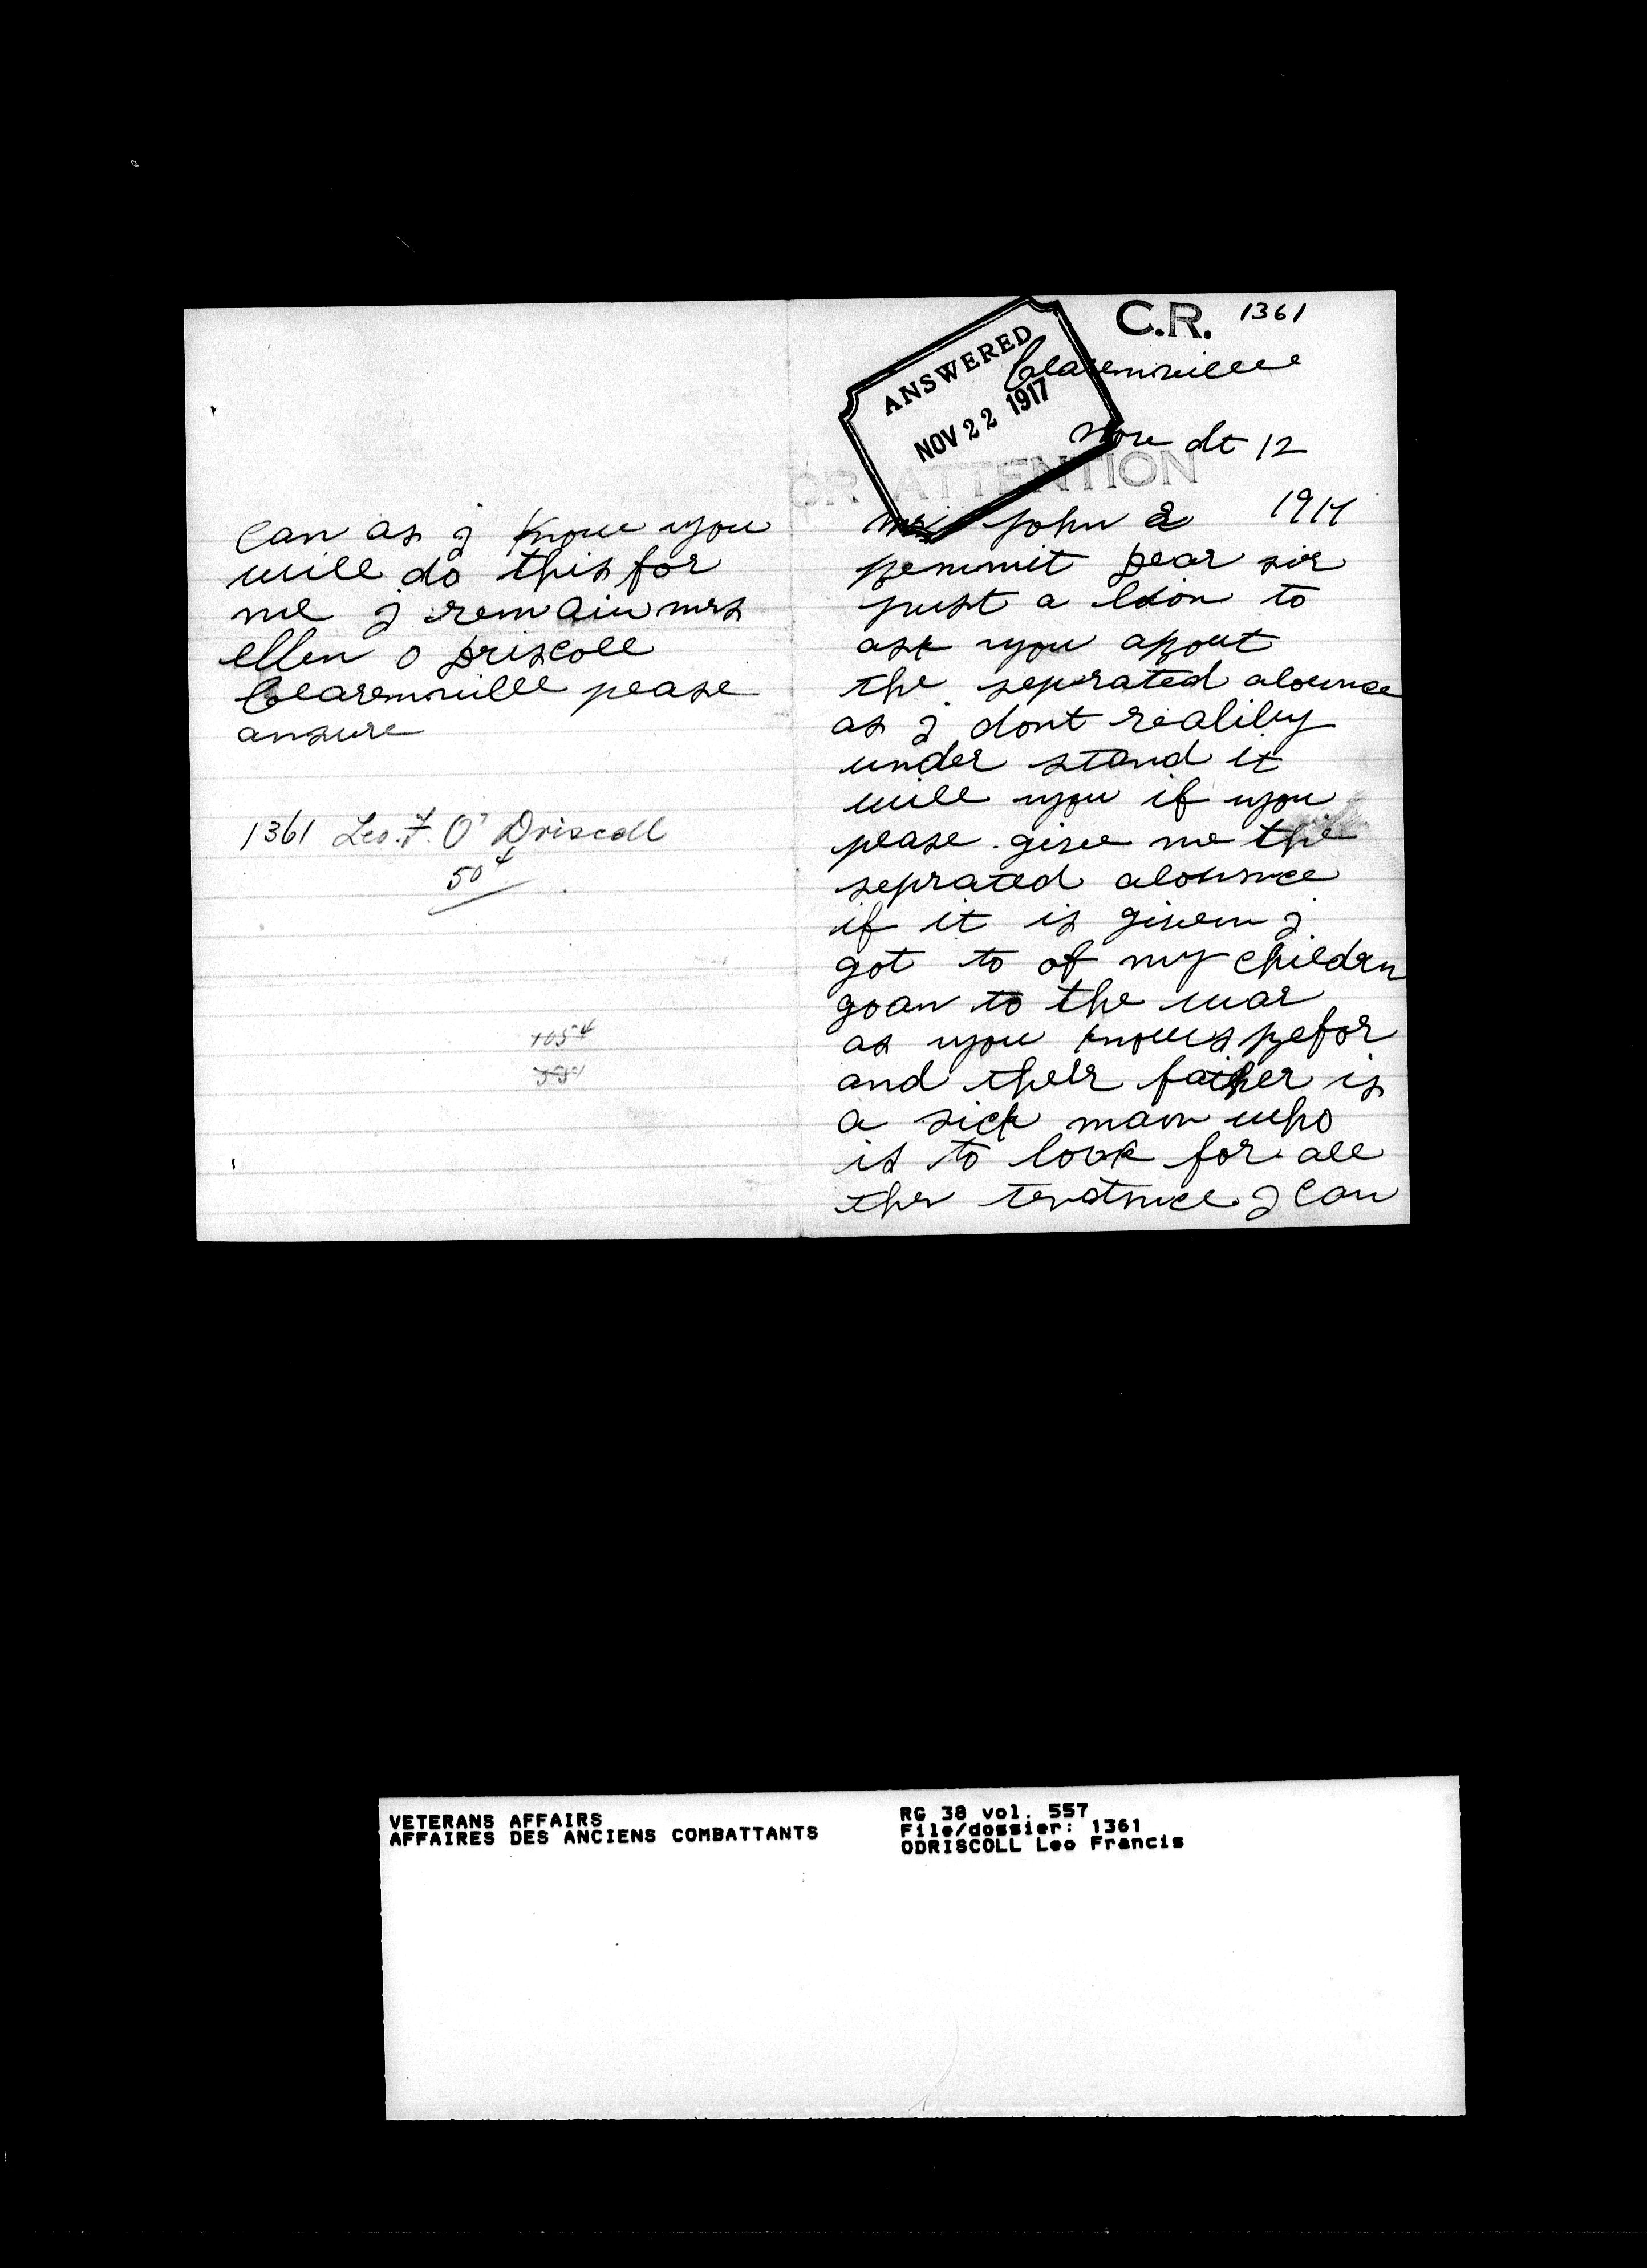 C.R. 1361
ANSWERED
NOV 22 1917
Clarenville
Nov dt 12
OR ATTENTION
1917
mr John R
bennit Dear sir
just a lion to
ask you about
the seprated alounce
as I dont realiby
under stand it
will you if you
pease give me the
seprated alounce
if it is given I
got to of my childrn
goan to the war
as you knows befor
and their father is
a sick man who
is to look for all
the I can
can as I know you
will do this for
me I remain mrs
ellen o Driscoll
Clarenville pease
ansure
1361 Leo. F. O'Driscoll
50¢
VETERANS AFFAIRS
AFFAIRES DES ANCIENS COMBATTANTS
RG 38 vol. 557
File/dossier: 1361
ODRISCOLL Leo Francis